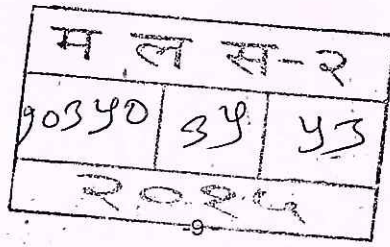 म ल स-२
१०३५० ३५ ५३
२०१५
-9-